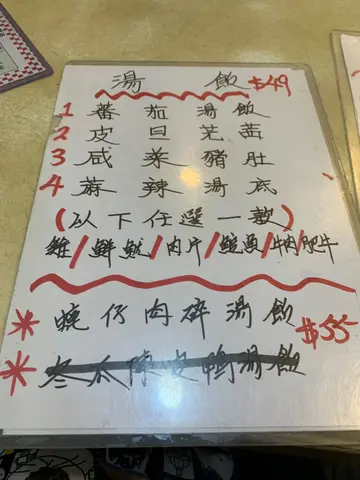 湯 飯 $49
1 蕃茄湯飯
2 皮旦芫茜
3 咸菜豬肚
4 蔴辣湯底
(以下任選一款)
雞/鮮魷/肉片/鯇魚/牛肉/肥牛
* 曉仔肉碎湯飯 $55
* 冬瓜陳皮鴨湯飯